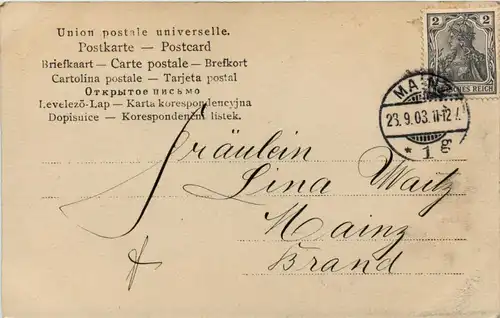 Union postale universelle.
Postkarte — Postcard
Briefkaart — Carte postale — Brefkort
Cartolina postale — Tarjeta postal
Открытое письмо
Levelező-Lap — Karta korespondencyjna
Dopisnice — Korespondenční lístek.
2 2
DEUTSCHES REICH
MAINZ
23.9.03. 11-12
* 1 g
Fräulein
Lina Waitz
Mainz
Brand